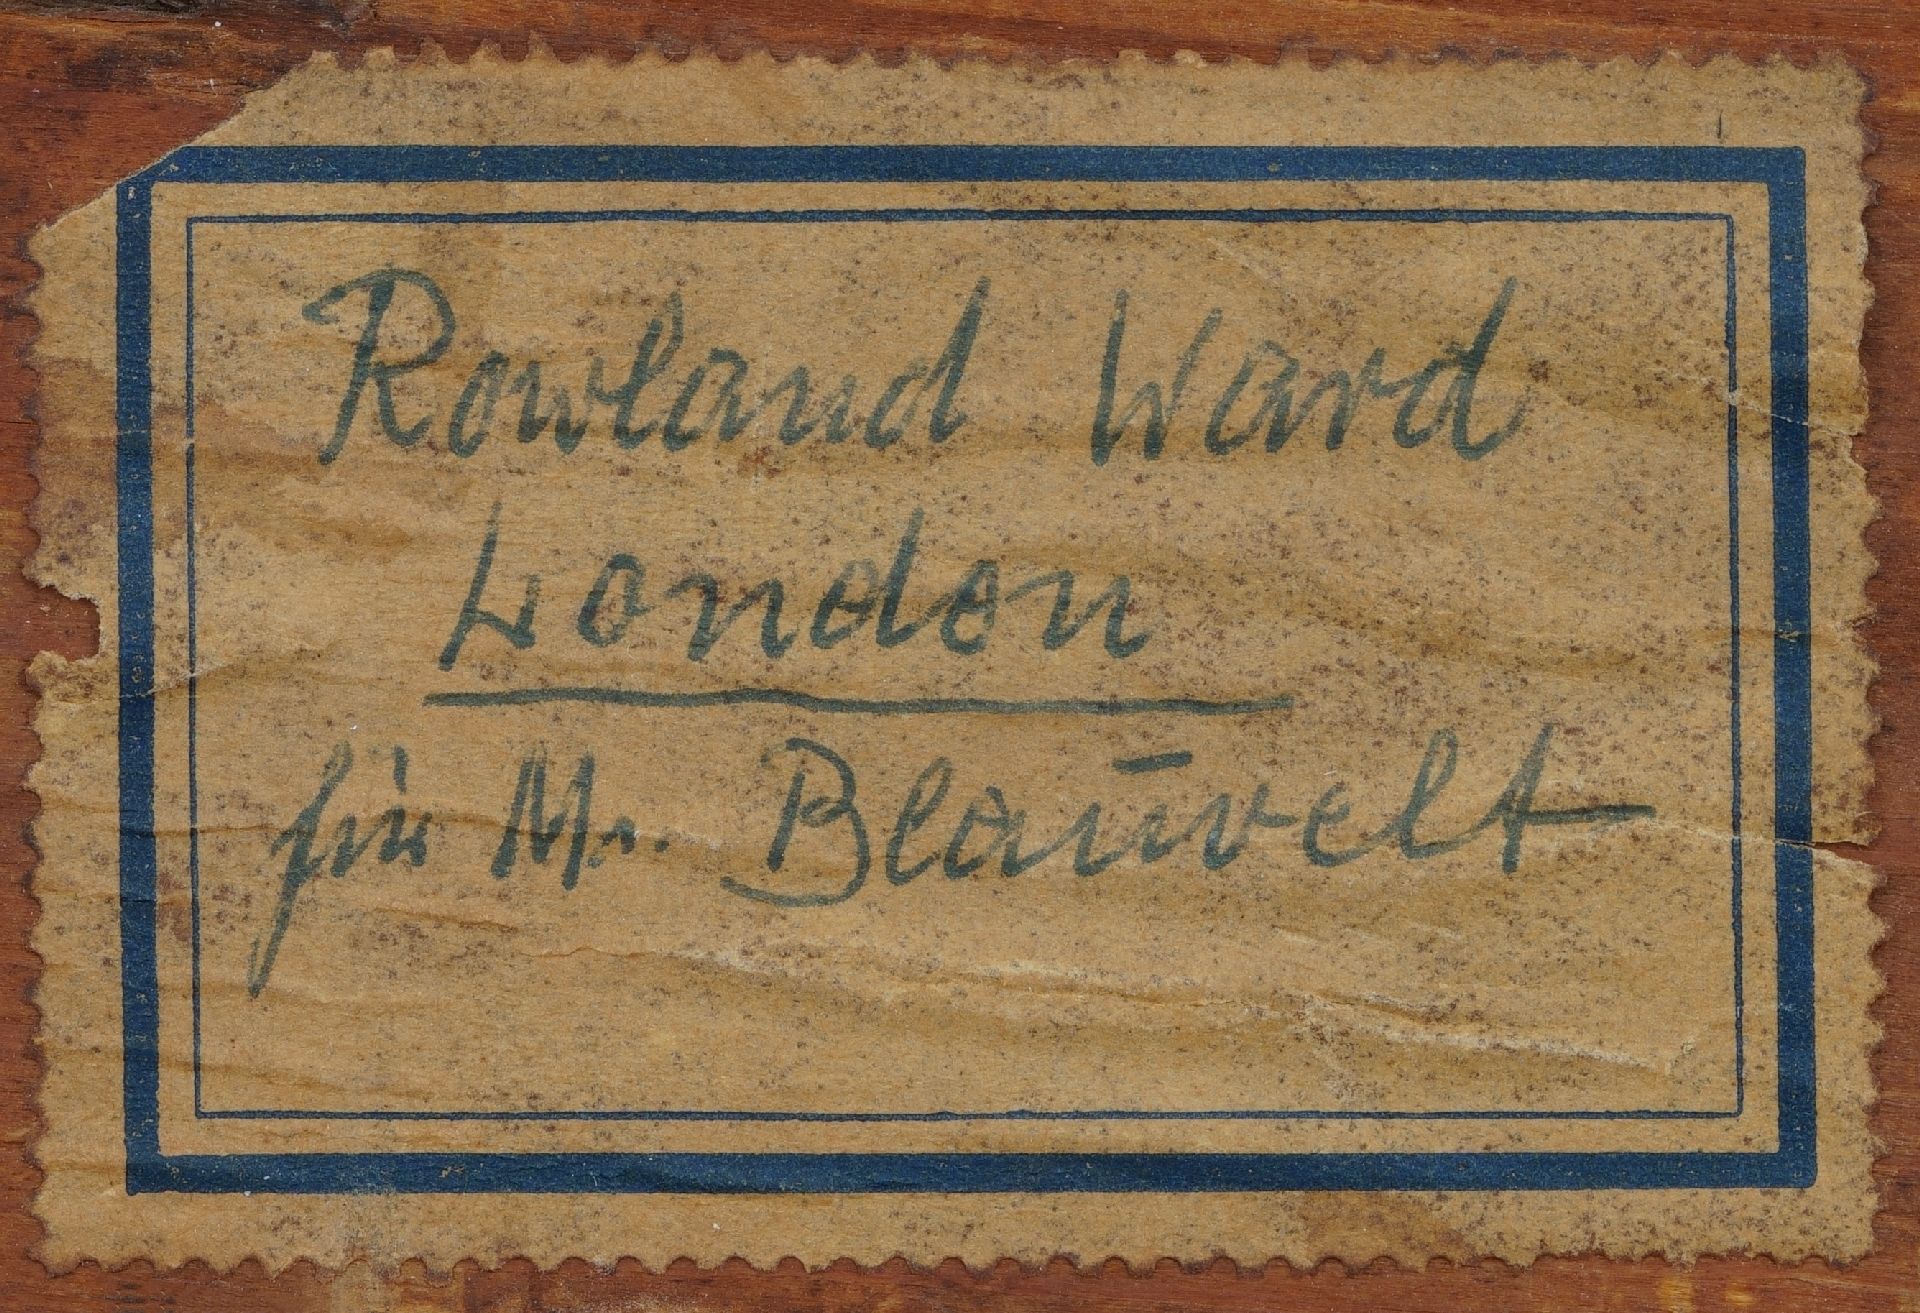 Rowland Ward
London
für Mr. Blauvelt